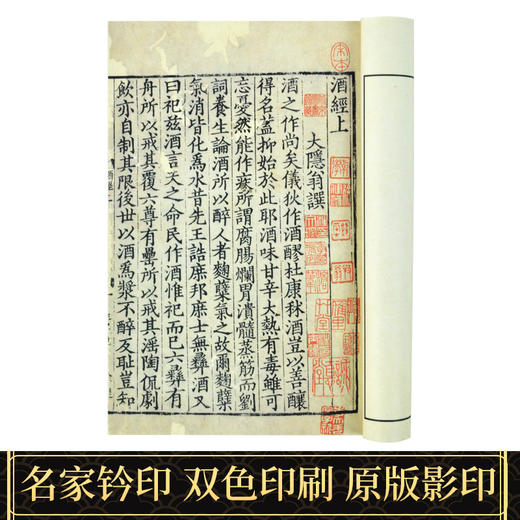 酒經上
大隱翁譔
酒之作尚矣儀狄作酒醪杜康秫酒豈以善釀
得名蓋抑始於此耶酒味甘辛大熱有毒雖可
忘憂然能作疾所謂腐腸爛胃潰髓蒸筋而劉
詞養生論酒所以醉人者麴糵氣之故爾麴糵
氣消皆化為水昔先王誥庶邦庶士無彝酒又
曰祀兹酒言天之命民作酒惟祀而已六彝有
舟所以戒其覆六尊有罍所以戒其滛陶侃劇
飲亦自制其限後世以酒為漿不醉反恥豈知
宋本
名家钤印 双色印刷 原版影印